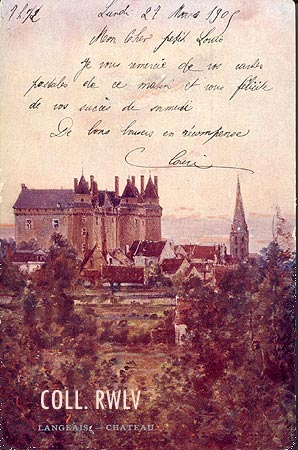 Lundi 27 Mars 1905
Mon Cher petit Louis
Je vous remercie de vos cartes
postales de ce matin et vous félicite
de vos succès de samedi
De bons baisers en récompense
COLL. RWLV
LANGEAIS. — CHATEAU